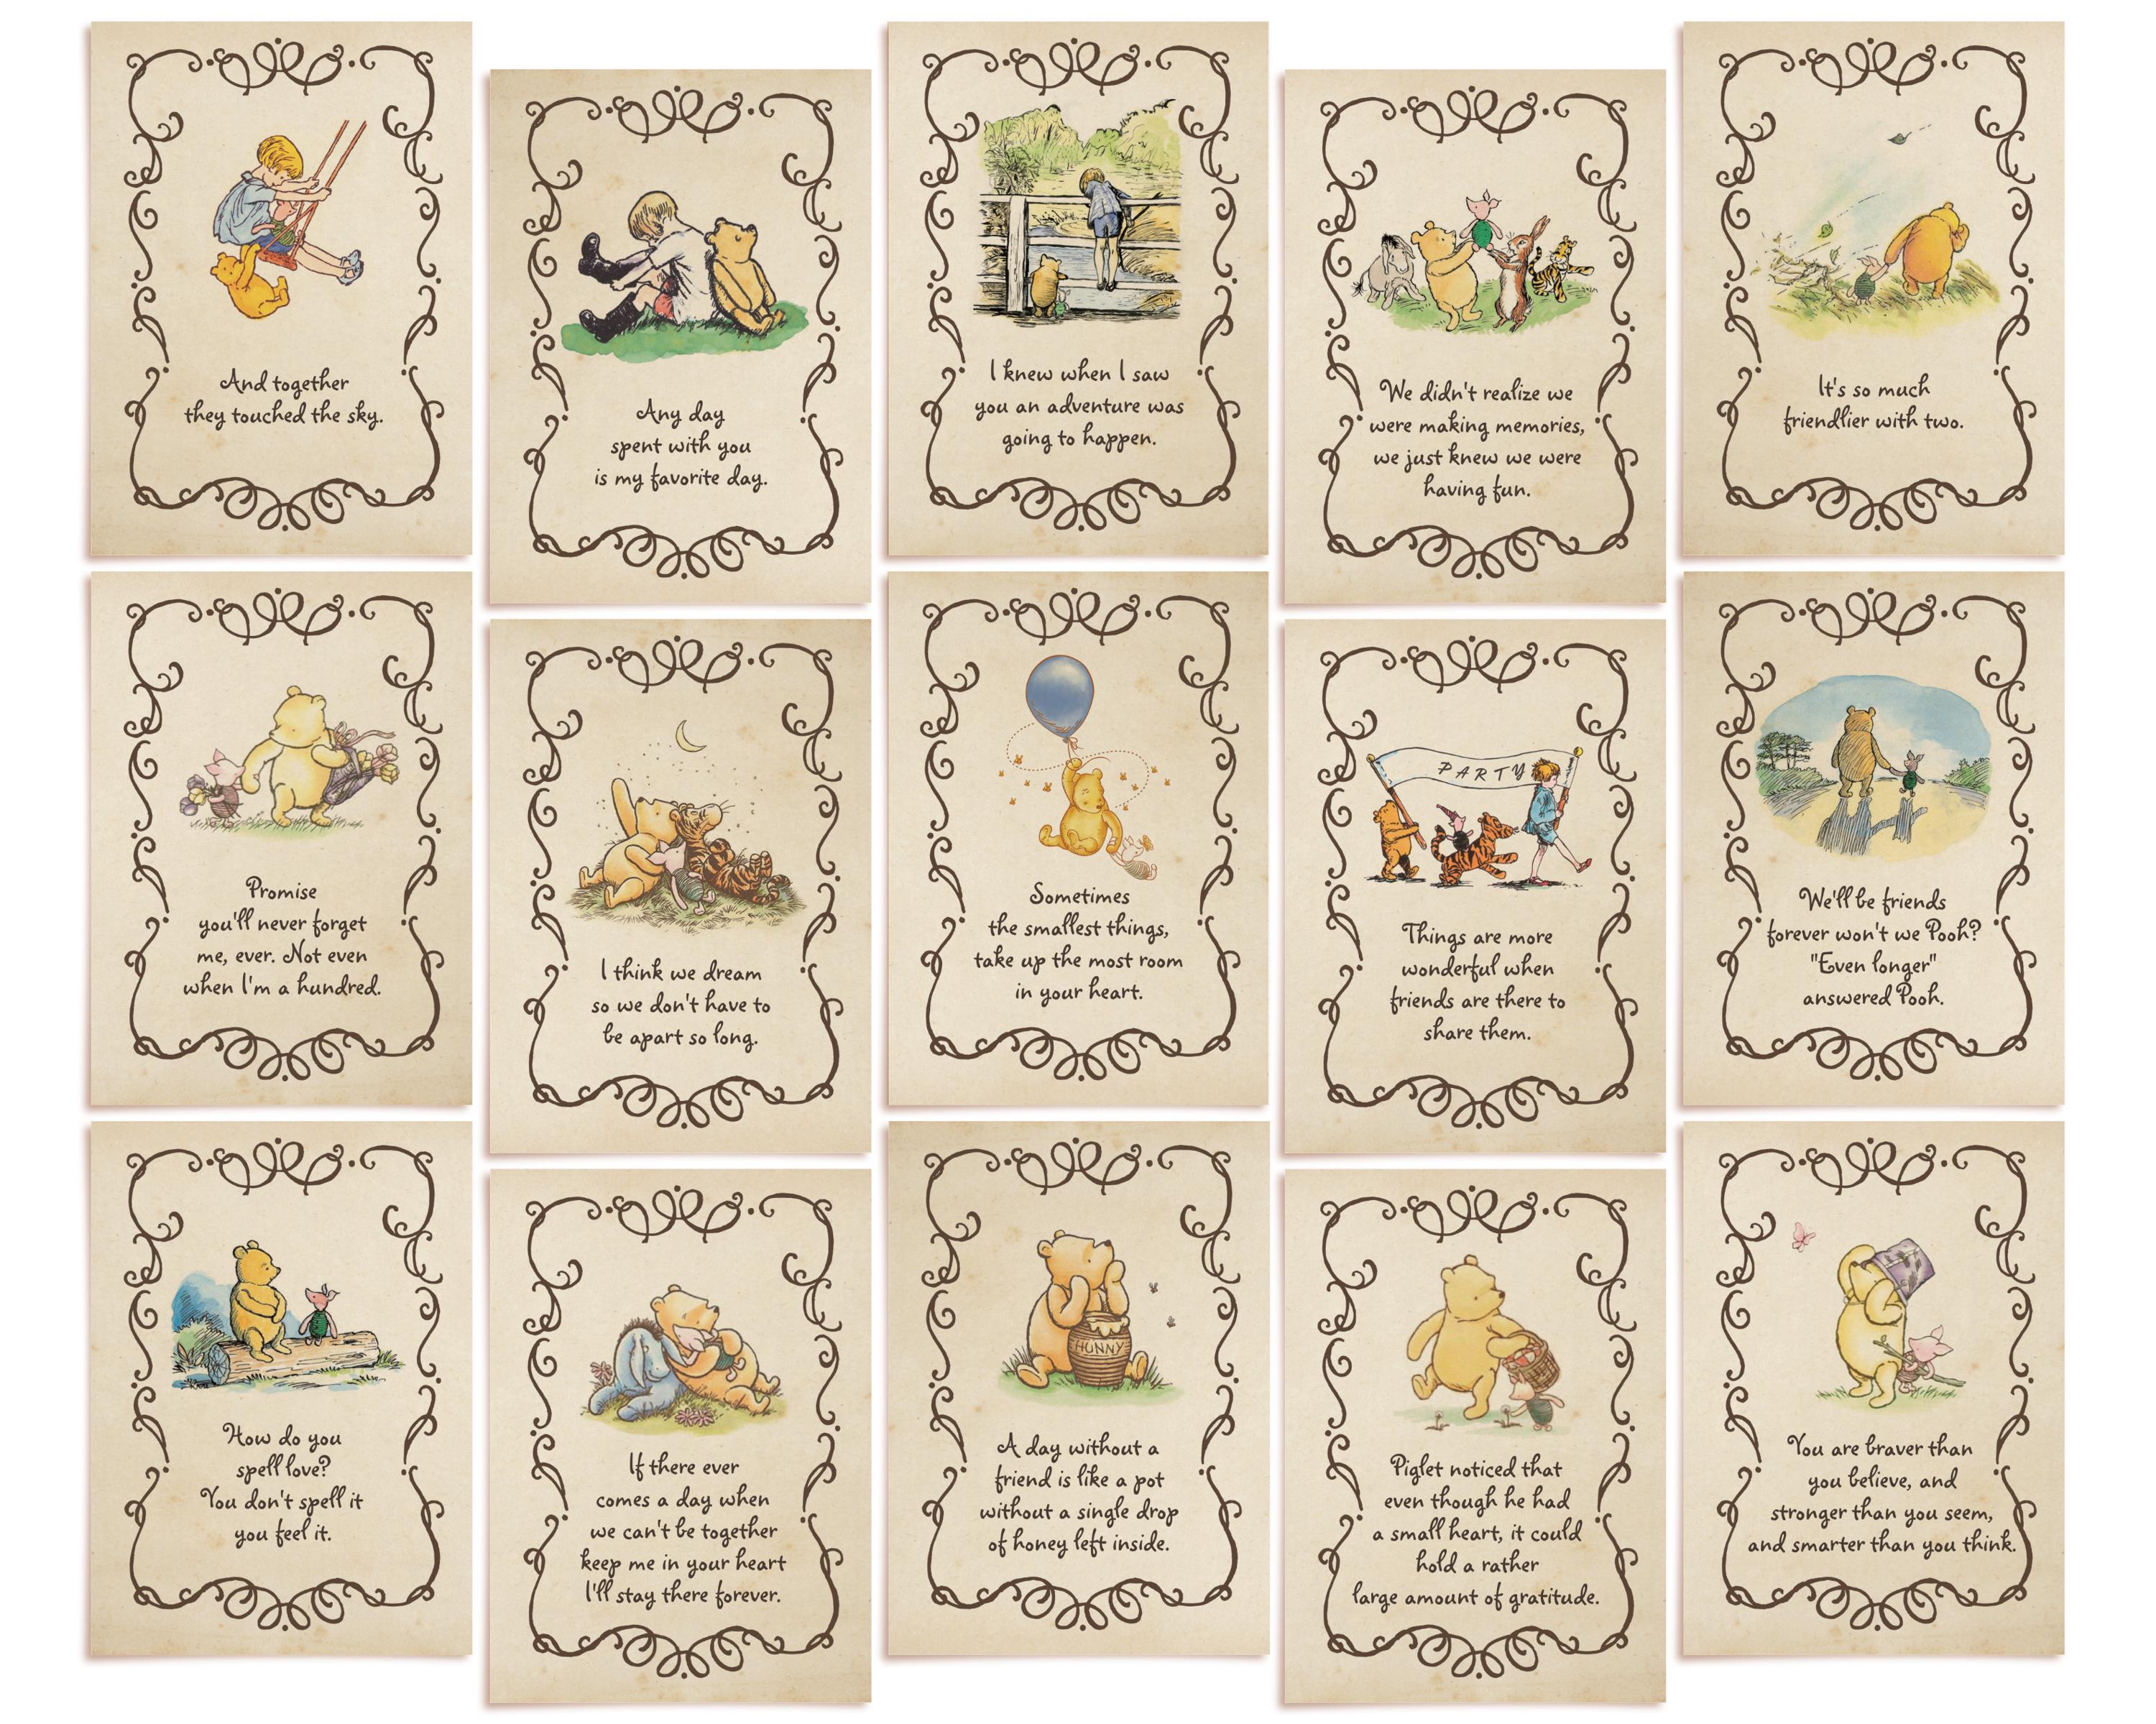 And together
they touched the sky.
Any day
spent with you
is my favorite day.
I knew when I saw
you an adventure was
going to happen.
We didn't realize we
were making memories,
we just knew we were
having fun.
It's so much
friendlier with two.
Promise
you'll never forget
me, ever. Not even
when I'm a hundred.
I think we dream
so we don't have to
be apart so long.
Sometimes
the smallest things,
take up the most room
in your heart.
PARTY
Things are more
wonderful when
friends are there to
share them.
We'll be friends
forever won't we Pooh?
"Even longer"
answered Pooh.
How do you
spell love?
You don't spell it
you feel it.
If there ever
comes a day when
we can't be together
keep me in your heart
I'll stay there forever.
HUNNY
A day without a
friend is like a pot
without a single drop
of honey left inside.
Piglet noticed that
even though he had
a small heart, it could
hold a rather
large amount of gratitude.
You are braver than
you believe, and
stronger than you seem,
and smarter than you think.